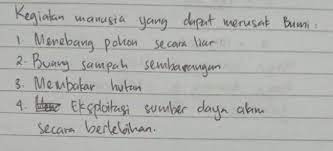 Kegiatan manusia yang dapat merusak Bumi.
1. Menebang pohon secara liar
2. Buang sampah sembarangan
3. Membakar hutan
4. Eksploitasi sumber daya alam
secara berlebihan.